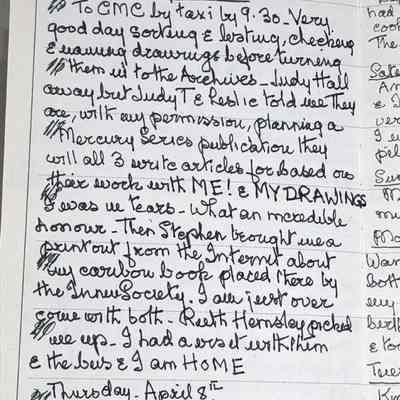 To CMC by taxi by 9.30_Very
good day sorting & listing, checking
& naming drawings before turning
them in to the Archives_Judy Hall
away but Judy T & Leslie told me they
are, with my permission, planning a
Mercury Series publication they
will all 3 write articles for based on
their work with ME! & MY DRAWINGS
I was in tears_What an incredible
honour_Then Stephen brought me a
printout from the Internet about
my caribou book placed there by
the Innu Society. I am just over
come with both_Ruth Hemsley picked
me up_I had a visit with them
& the bus & I am HOME
Thursday_April 8TH
had
cook
The
Sate
& I
Su
mu
Wan
both
my
& to